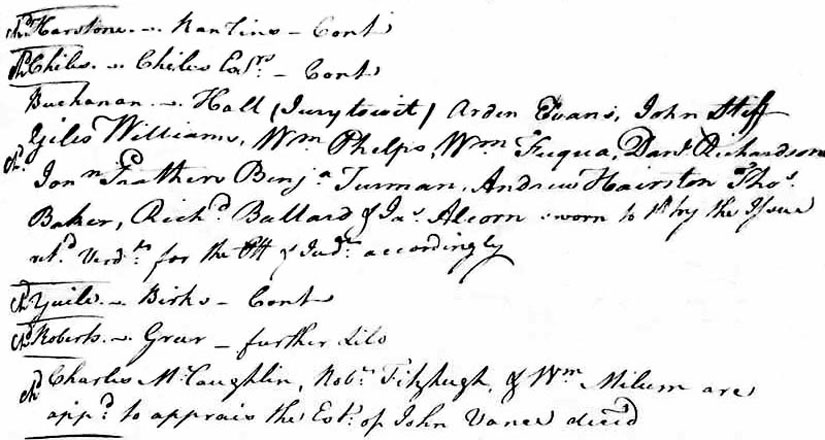 Chd Harstone. v. Rankins - Cont
Chd Chiles. v. Chiles Exrs. - Cont
Buchanan. v. Hall (Jury towit) Arden Evans, John Stiff
Chd Giles Williams, Wm Phelps, Wm Fuqua, Danl. Richardson
Jonn Prather Benja Turman, Andrew Hairston Thos.
Baker, Richd Ballard & Jas. Alcorn sworn to try the Issue
ret.d Verdt. for the Plt & Judt. accordingly
Chd Guile. v. Birks - Cont
Chd Roberts. v. Greer - further
Chd Charles McLaughlin, Robt. Fitzhugh, & Wm Milum are
appd. to apprais the Est. of John Vance decd